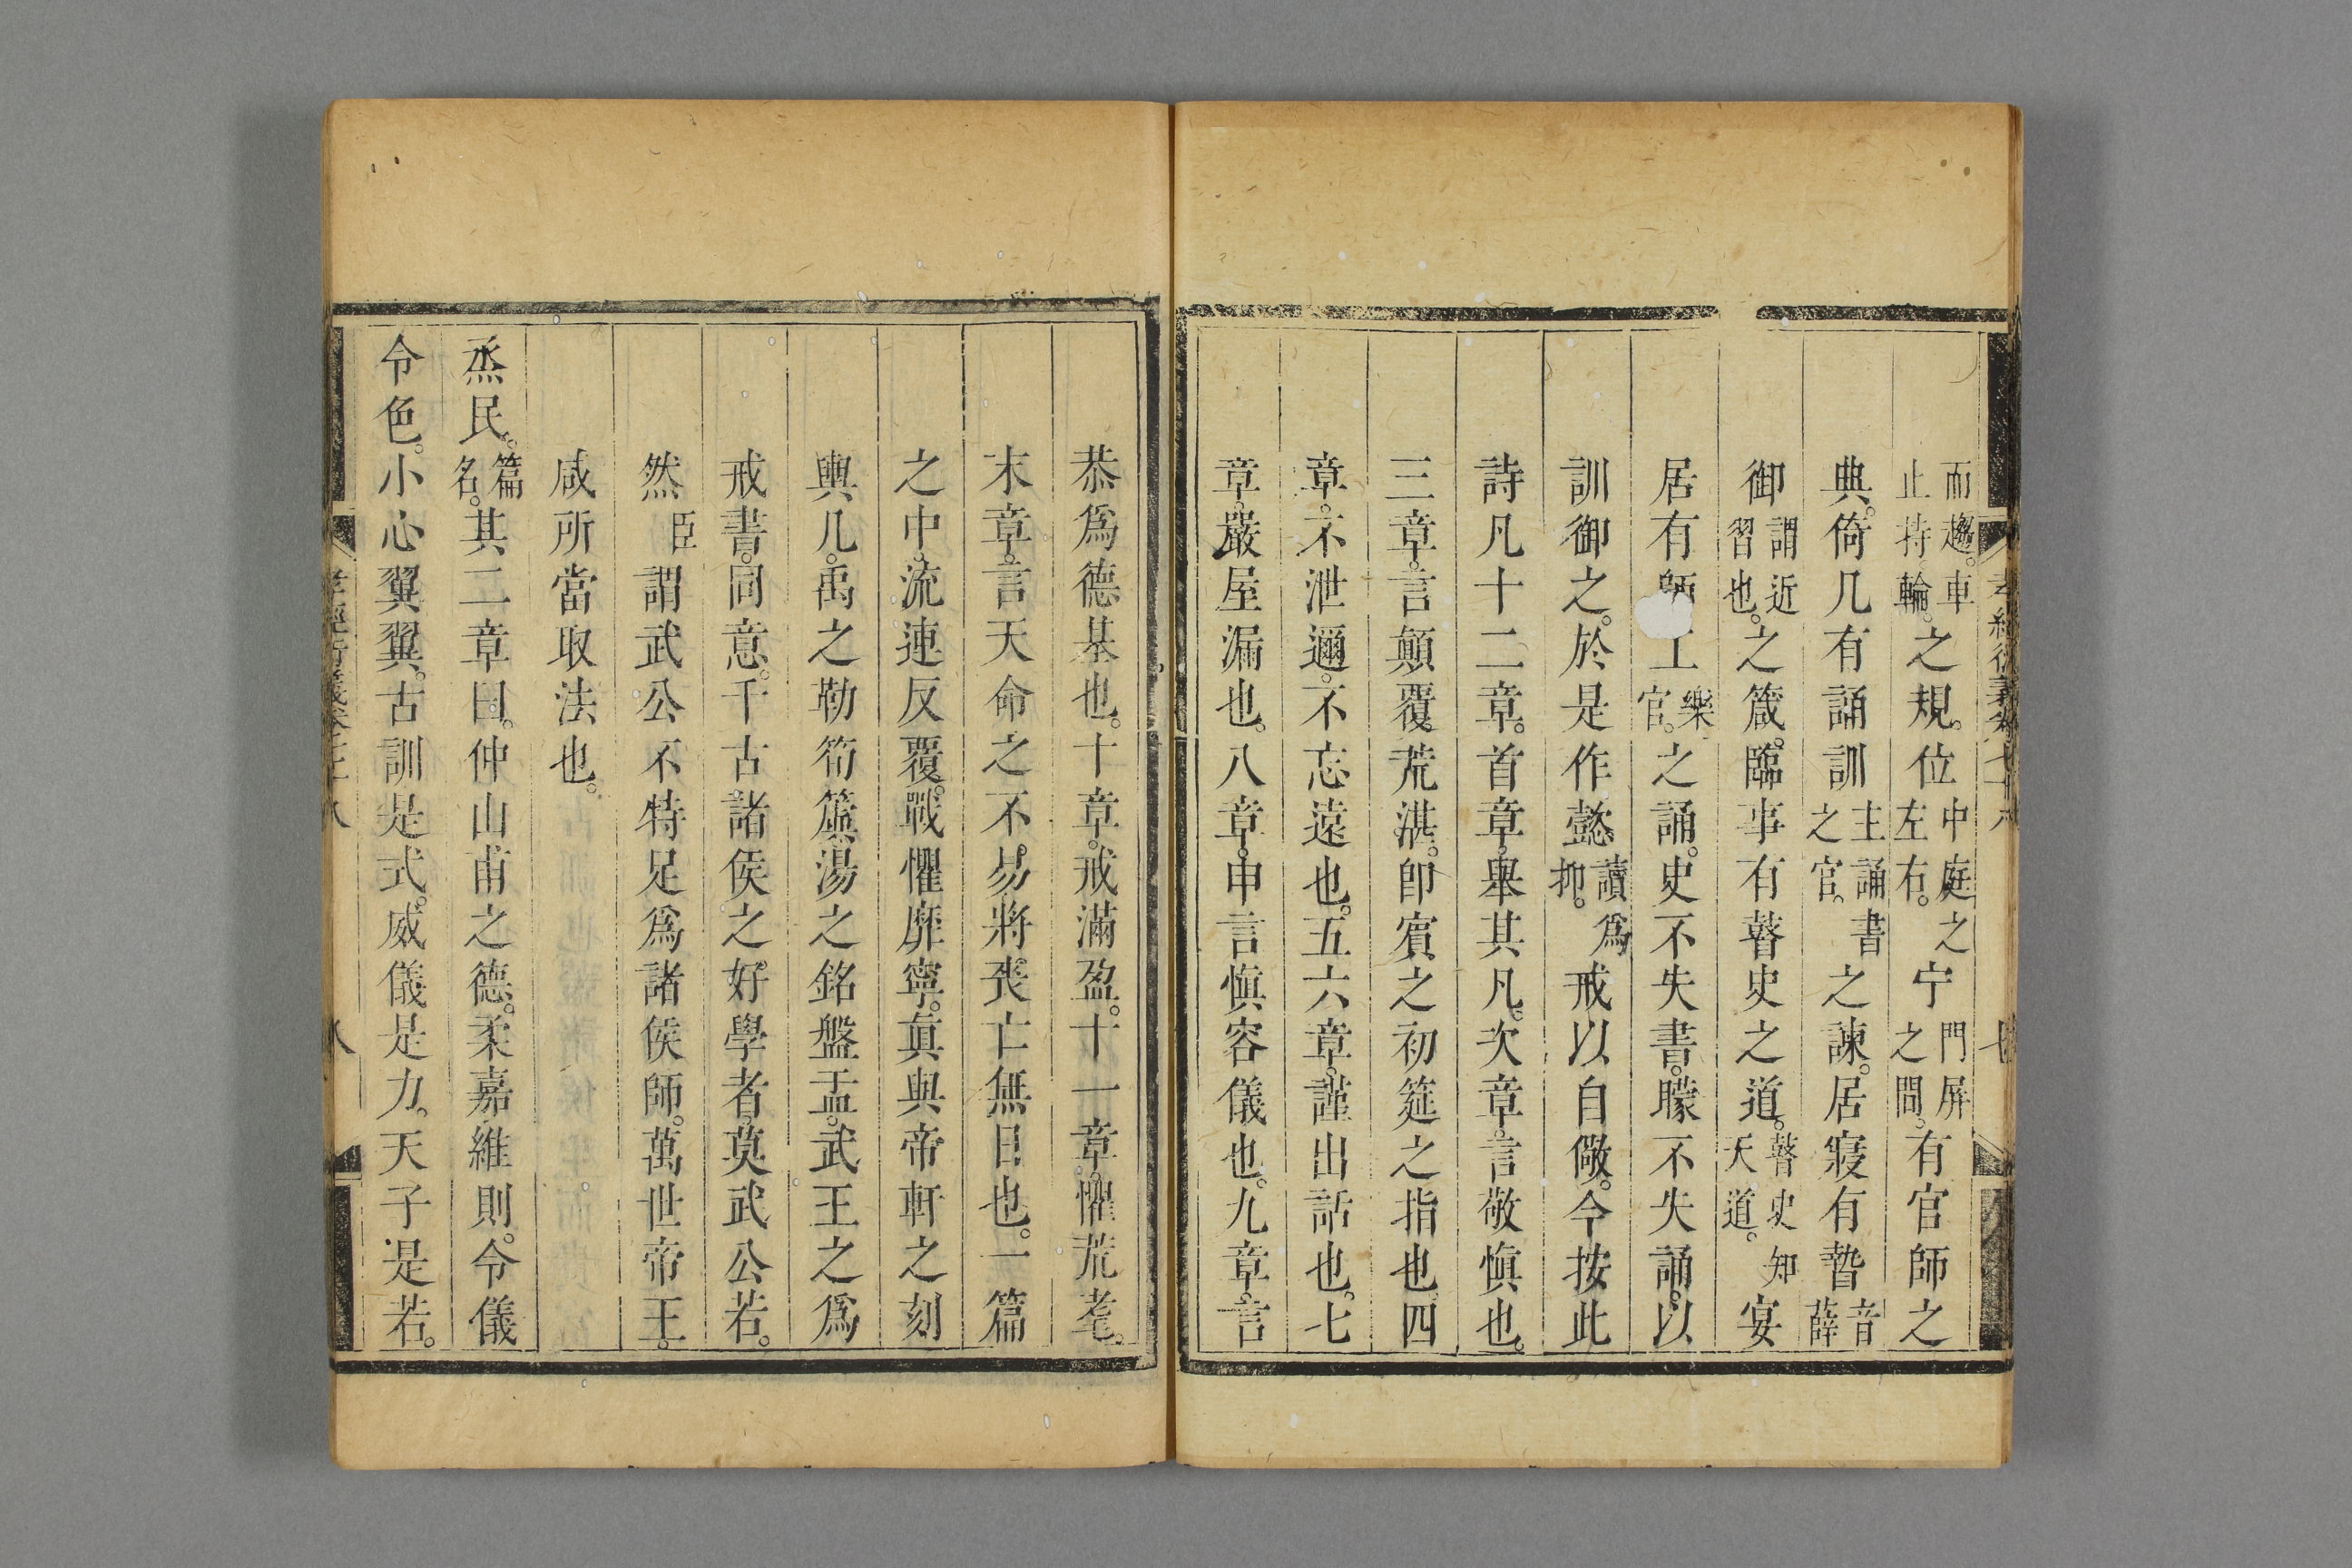 而趨車止持輪之規位中庭之左右之宁門屏之間有官師之
典倚几有誦訓主誦書之官之諫居寢有暬音薛
御謂近習也之箴臨事有瞽史之道瞽史知天道宴
居有工樂官之誦史不失書矇不失誦以
訓御之於是作懿讀爲抑戒以自儆今按此
詩凡十二章首章舉其凡次章言敬慎也
三章言顛覆荒湛卽賓之初筵之指也四
章不泄邇不忘遠也五六章謹出話也七
章嚴屋漏也八章申言慎容儀也九章言
恭爲德基也十章戒滿盈十一章懼荒耄
末章言天命之不易將喪亡無日也一篇
之中流連反覆戰懼靡寧眞與帝軒之刻
輿几禹之勒筍簴湯之銘盤盂武王之爲
戒書同意千古諸侯之好學者莫武公若
然臣謂武公不特足爲諸侯師萬世帝王
咸所當取法也
烝民篇名其二章曰仲山甫之德柔嘉維則令儀
令色小心翼翼古訓是式威儀是力天子是若